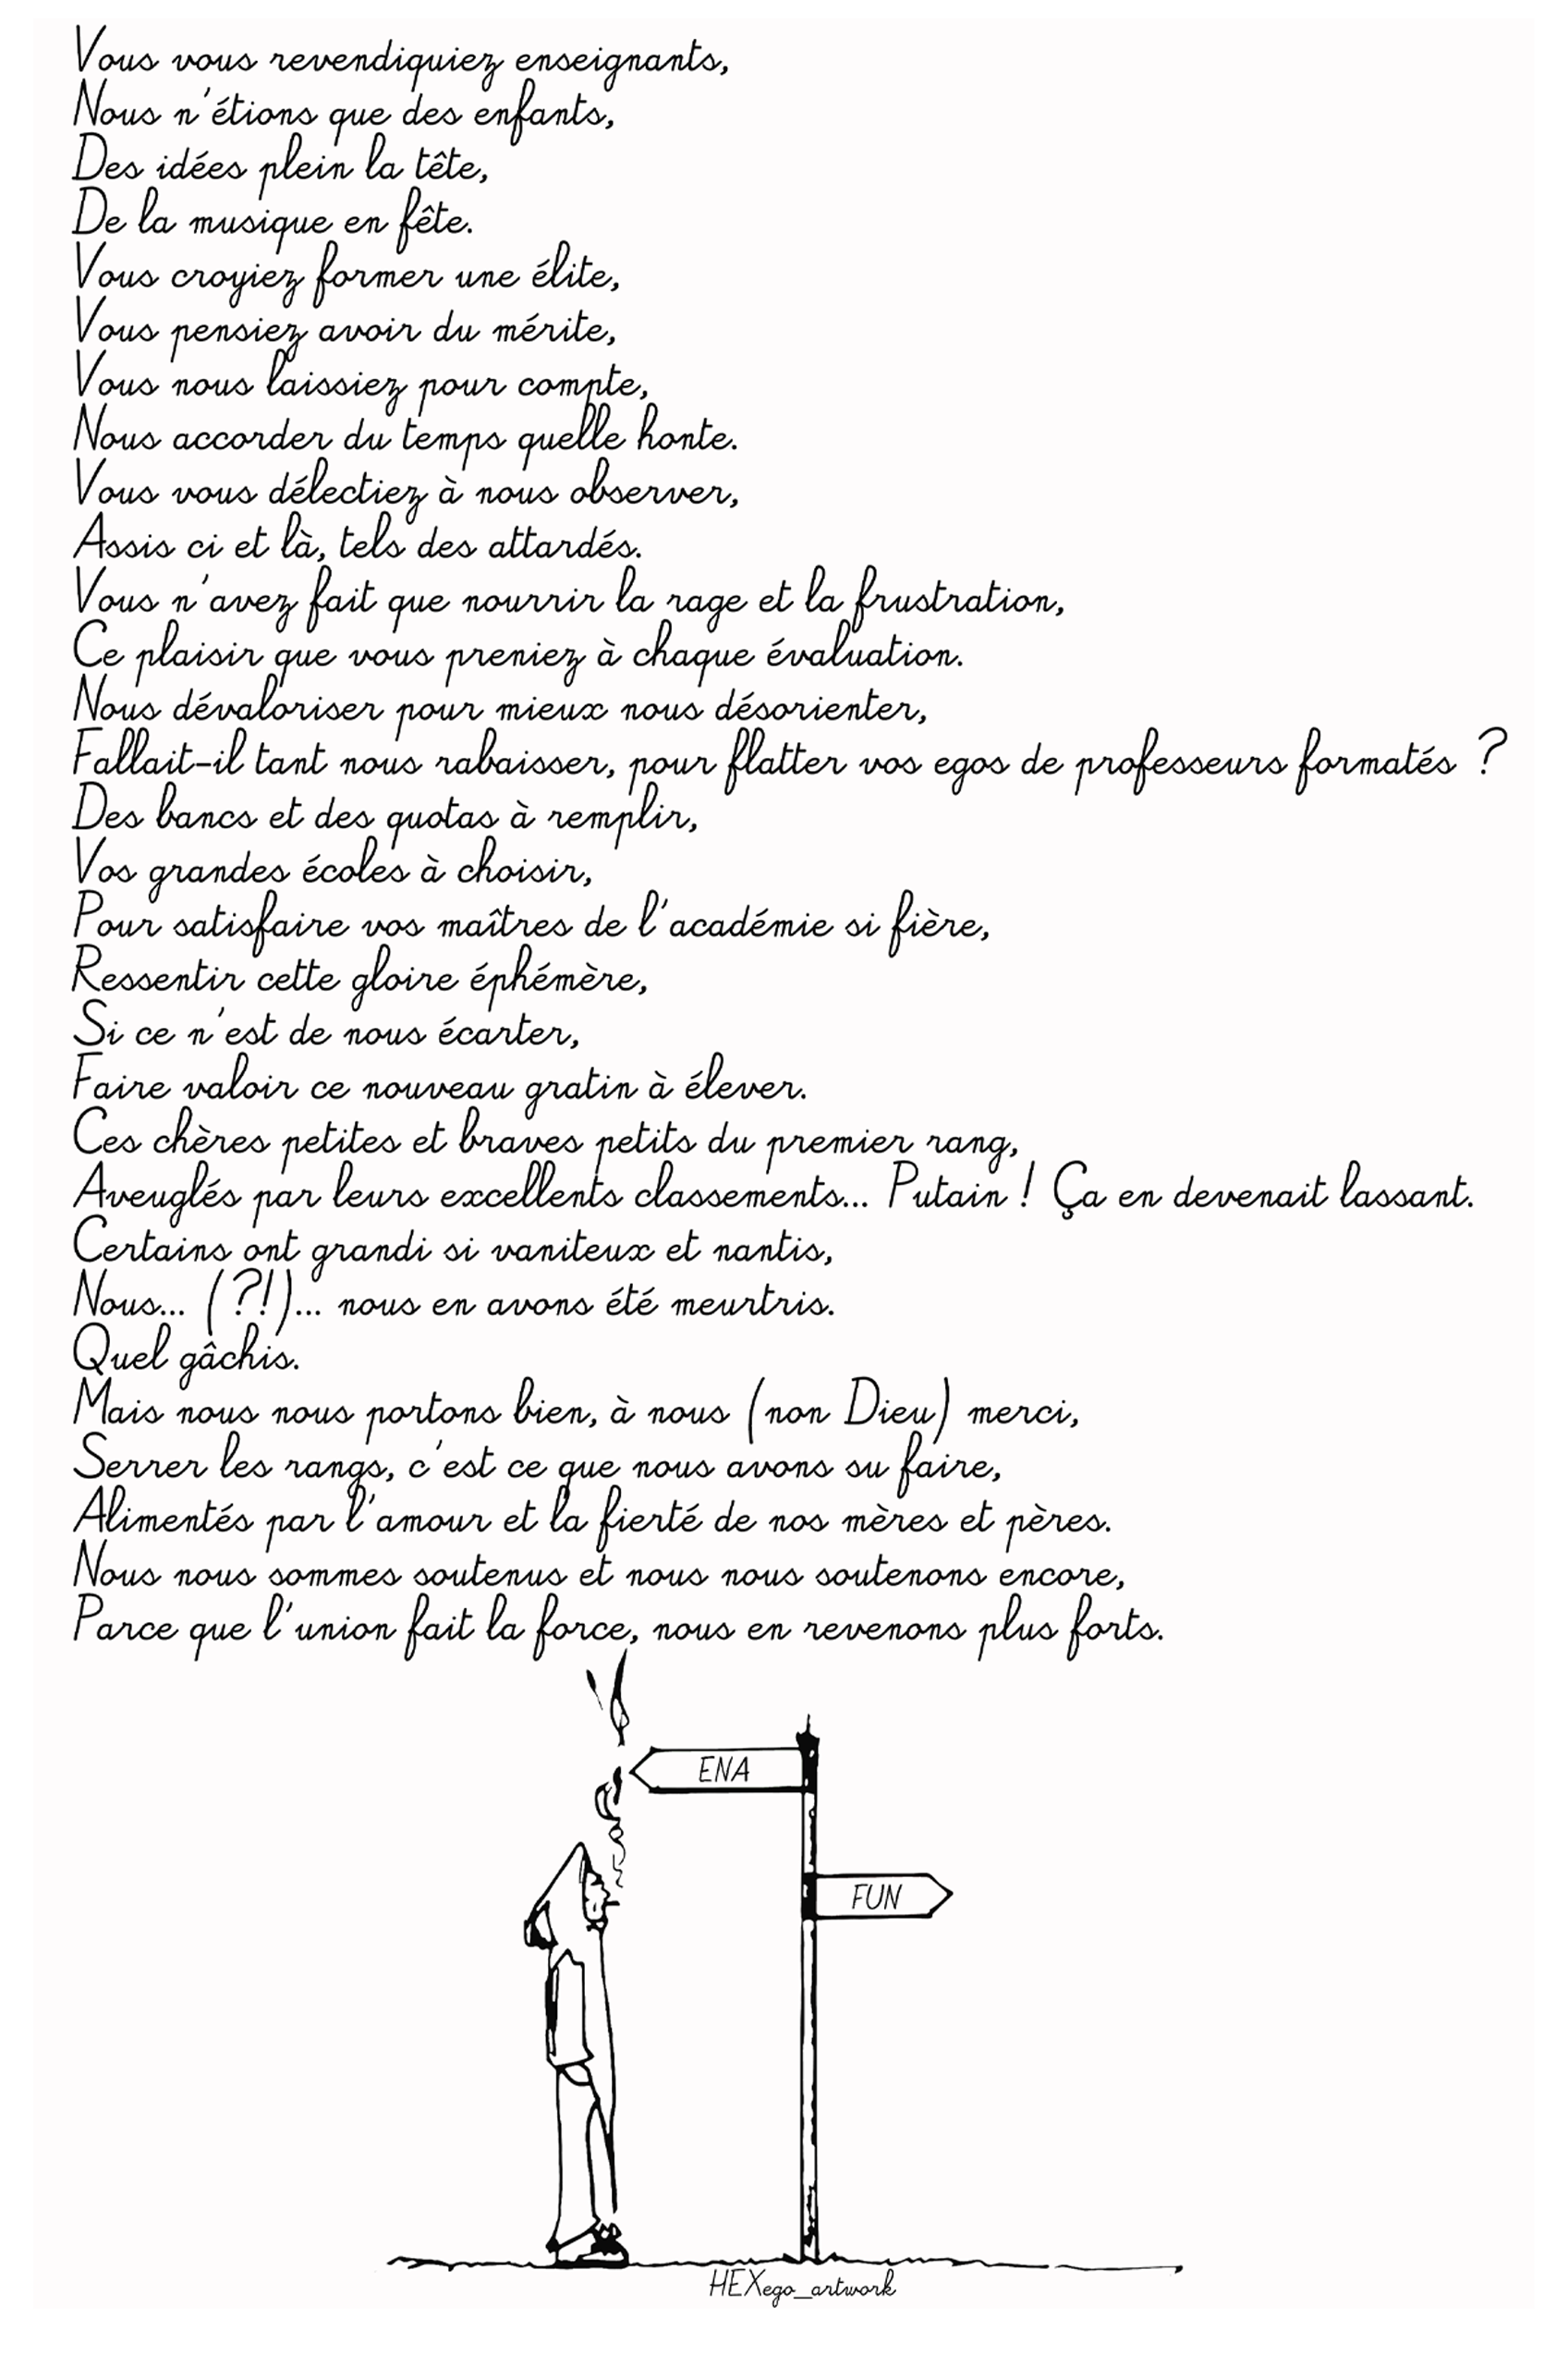 Vous vous revendiquiez enseignants,
Nous n'étions que des enfants,
Des idées plein la tête,
De la musique en fête.
Vous croyiez former une élite,
Vous pensiez avoir du mérite,
Vous nous laissiez pour compte,
Nous accorder du temps quelle honte.
Vous vous délectiez à nous observer,
Assis ci et là, tels des attardés.
Vous n'avez fait que nourrir la rage et la frustration,
Ce plaisir que vous preniez à chaque évaluation.
Nous dévaloriser pour mieux nous désorienter,
Fallait-il tant nous rabaisser, pour flatter vos egos de professeurs formatés ?
Des bancs et des quotas à remplir,
Vos grandes écoles à choisir,
Pour satisfaire vos maîtres de l'académie si fière,
Ressentir cette gloire éphémère,
Si ce n'est de nous écarter,
Faire valoir ce nouveau gratin à élever.
Ces chères petites et braves petits du premier rang,
Aveuglés par leurs excellents classements... Putain ! Ça en devenait lassant.
Certains ont grandi si vaniteux et nantis,
Nous... (?!)... nous en avons été meurtris.
Quel gâchis.
Mais nous nous portons bien, à nous (non Dieu) merci,
Serrer les rangs, c'est ce que nous avons su faire,
Alimentés par l'amour et la fierté de nos mères et pères.
Nous nous sommes soutenus et nous nous soutenons encore,
Parce que l'union fait la force, nous en revenons plus forts.
ENA
FUN
HEXego_artwork